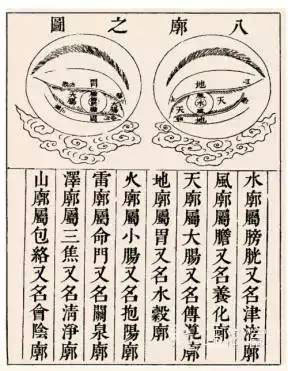 八廓之圖
地
水
天
天
水廓屬膀胱又名津液廓
風廓屬膽又名養化廓
天廓屬大腸又名傳導廓
地廓屬胃又名水穀廓
火廓屬小腸又名抱陽廓
雷廓屬命門又名關泉廓
澤廓屬三焦又名清淨廓
山廓屬包絡又名會陰廓